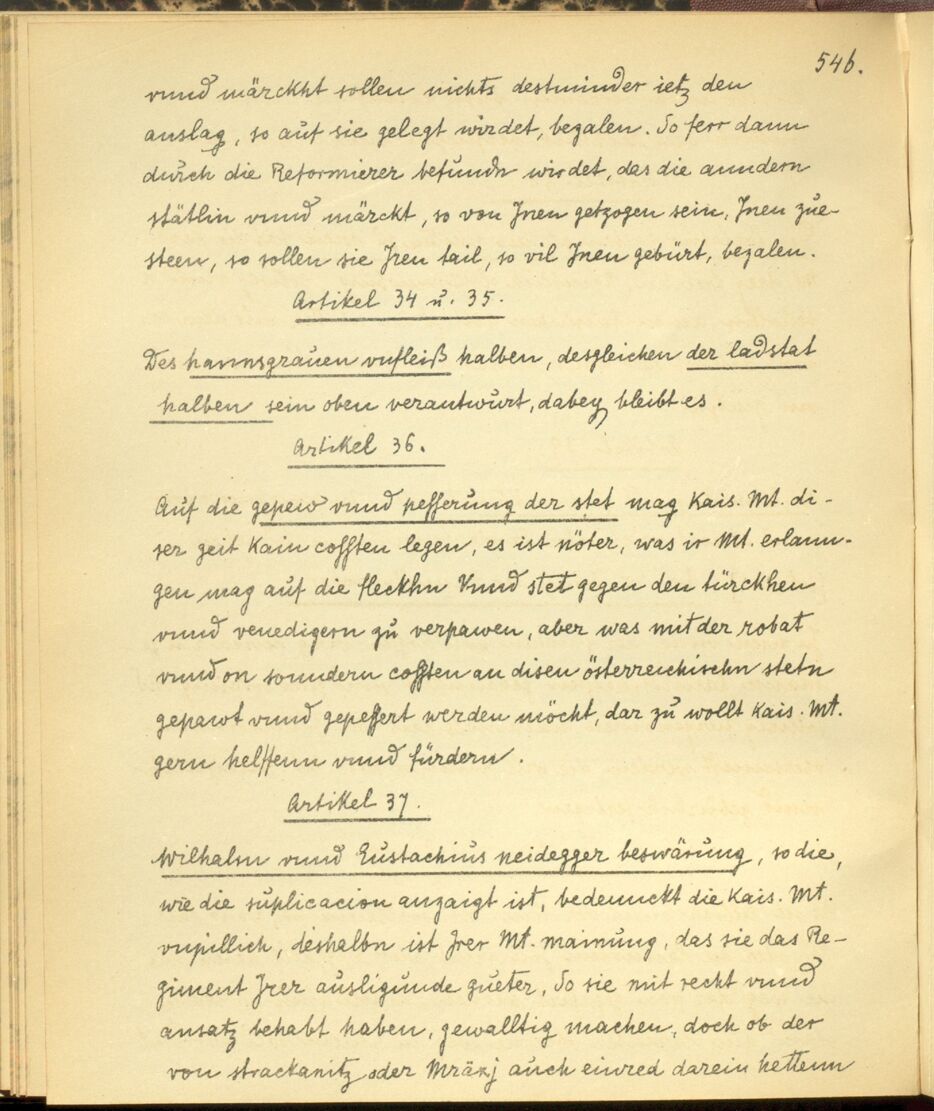 546.
vnnd märckht sollen nichts destminder ietz den
anslag, so auf sie gelegt wirdet, bezalen. So ferr dann
durch die Reformierer befundn wirdet, das die anndern
stätlin vnnd märckt, so von Jnen getzogen sein, Jnen zue-
steen, so sollen sie Jren tail, so vil Jnen gebürt, bezalen.
Artikel 34 u. 35.
Des hannsgrauen vnfleiß halben, desgleichen der ladstat
halben sein oben verantwurt, dabey bleibt es.
Artikel 36.
Auf die gepew vnnd pesserung der stet mag Kais. Mt. di-
ser zeit kain cossten legen, es ist nöter, was ir Mt. erlann-
gen mag auf die fleckhn Vnnd stet gegen den türckhen
vnnd venedigern zu verpawen, aber was mit der robat
vnnd on sonndern cossten an disen österreichischn stetn
gepawt vnnd gepessert werden möcht, dar zu wollt Kais. Mt.
gern helffenn vnnd fürdern.
Artikel 37.
Wilhalm vnnd Eustachius neidegger beswärung, so die,
wie die suplicacion anzaigt ist, bedennckt die Kais. Mt.
vnpillich, deshalbn ist Jrer Mt. mainung, das sie das Re-
giment Jrer ausligunde gueter, So sie mit recht vnnd
ansatz behabt haben, gewalltig machen, doch ob der
von strackanitz oder Mräxj auch einred darein hettenn